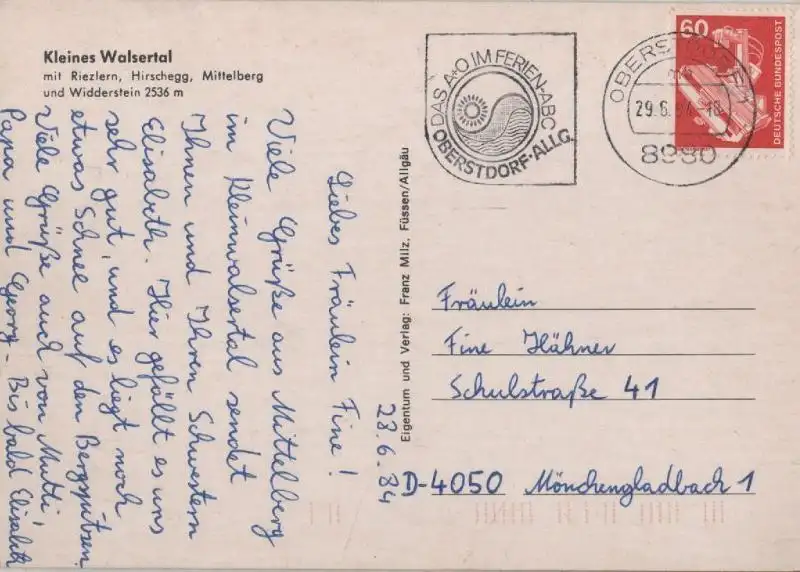 Kleines Walsertal
mit Riezlern, Hirschegg, Mittelberg
und Widderstein 2536 m
23.6.84
Liebes Fräulein Fine!
Viele Grüße aus Mittelberg
im Kleinwalsertal sendet
Ihnen und Ihren Schwestern
Elisabeth. Hier gefällt es uns
sehr gut, und es liegt noch
etwas Schnee auf den Bergspitzen.
Viele Grüße auch von Mutti,
Papa und Georg – Bis bald Elisabeth
Eigentum und Verlag: Franz Milz, Füssen/Allgäu
DAS A+O IM FERIEN-ABC
OBERSTDORF-ALLG.
OBERSTDORF 1
29.6.84-18
8980
60
DEUTSCHE BUNDESPOST
Fräulein
Fine Hähner
Schulstraße 41
D-4050 Mönchengladbach 1